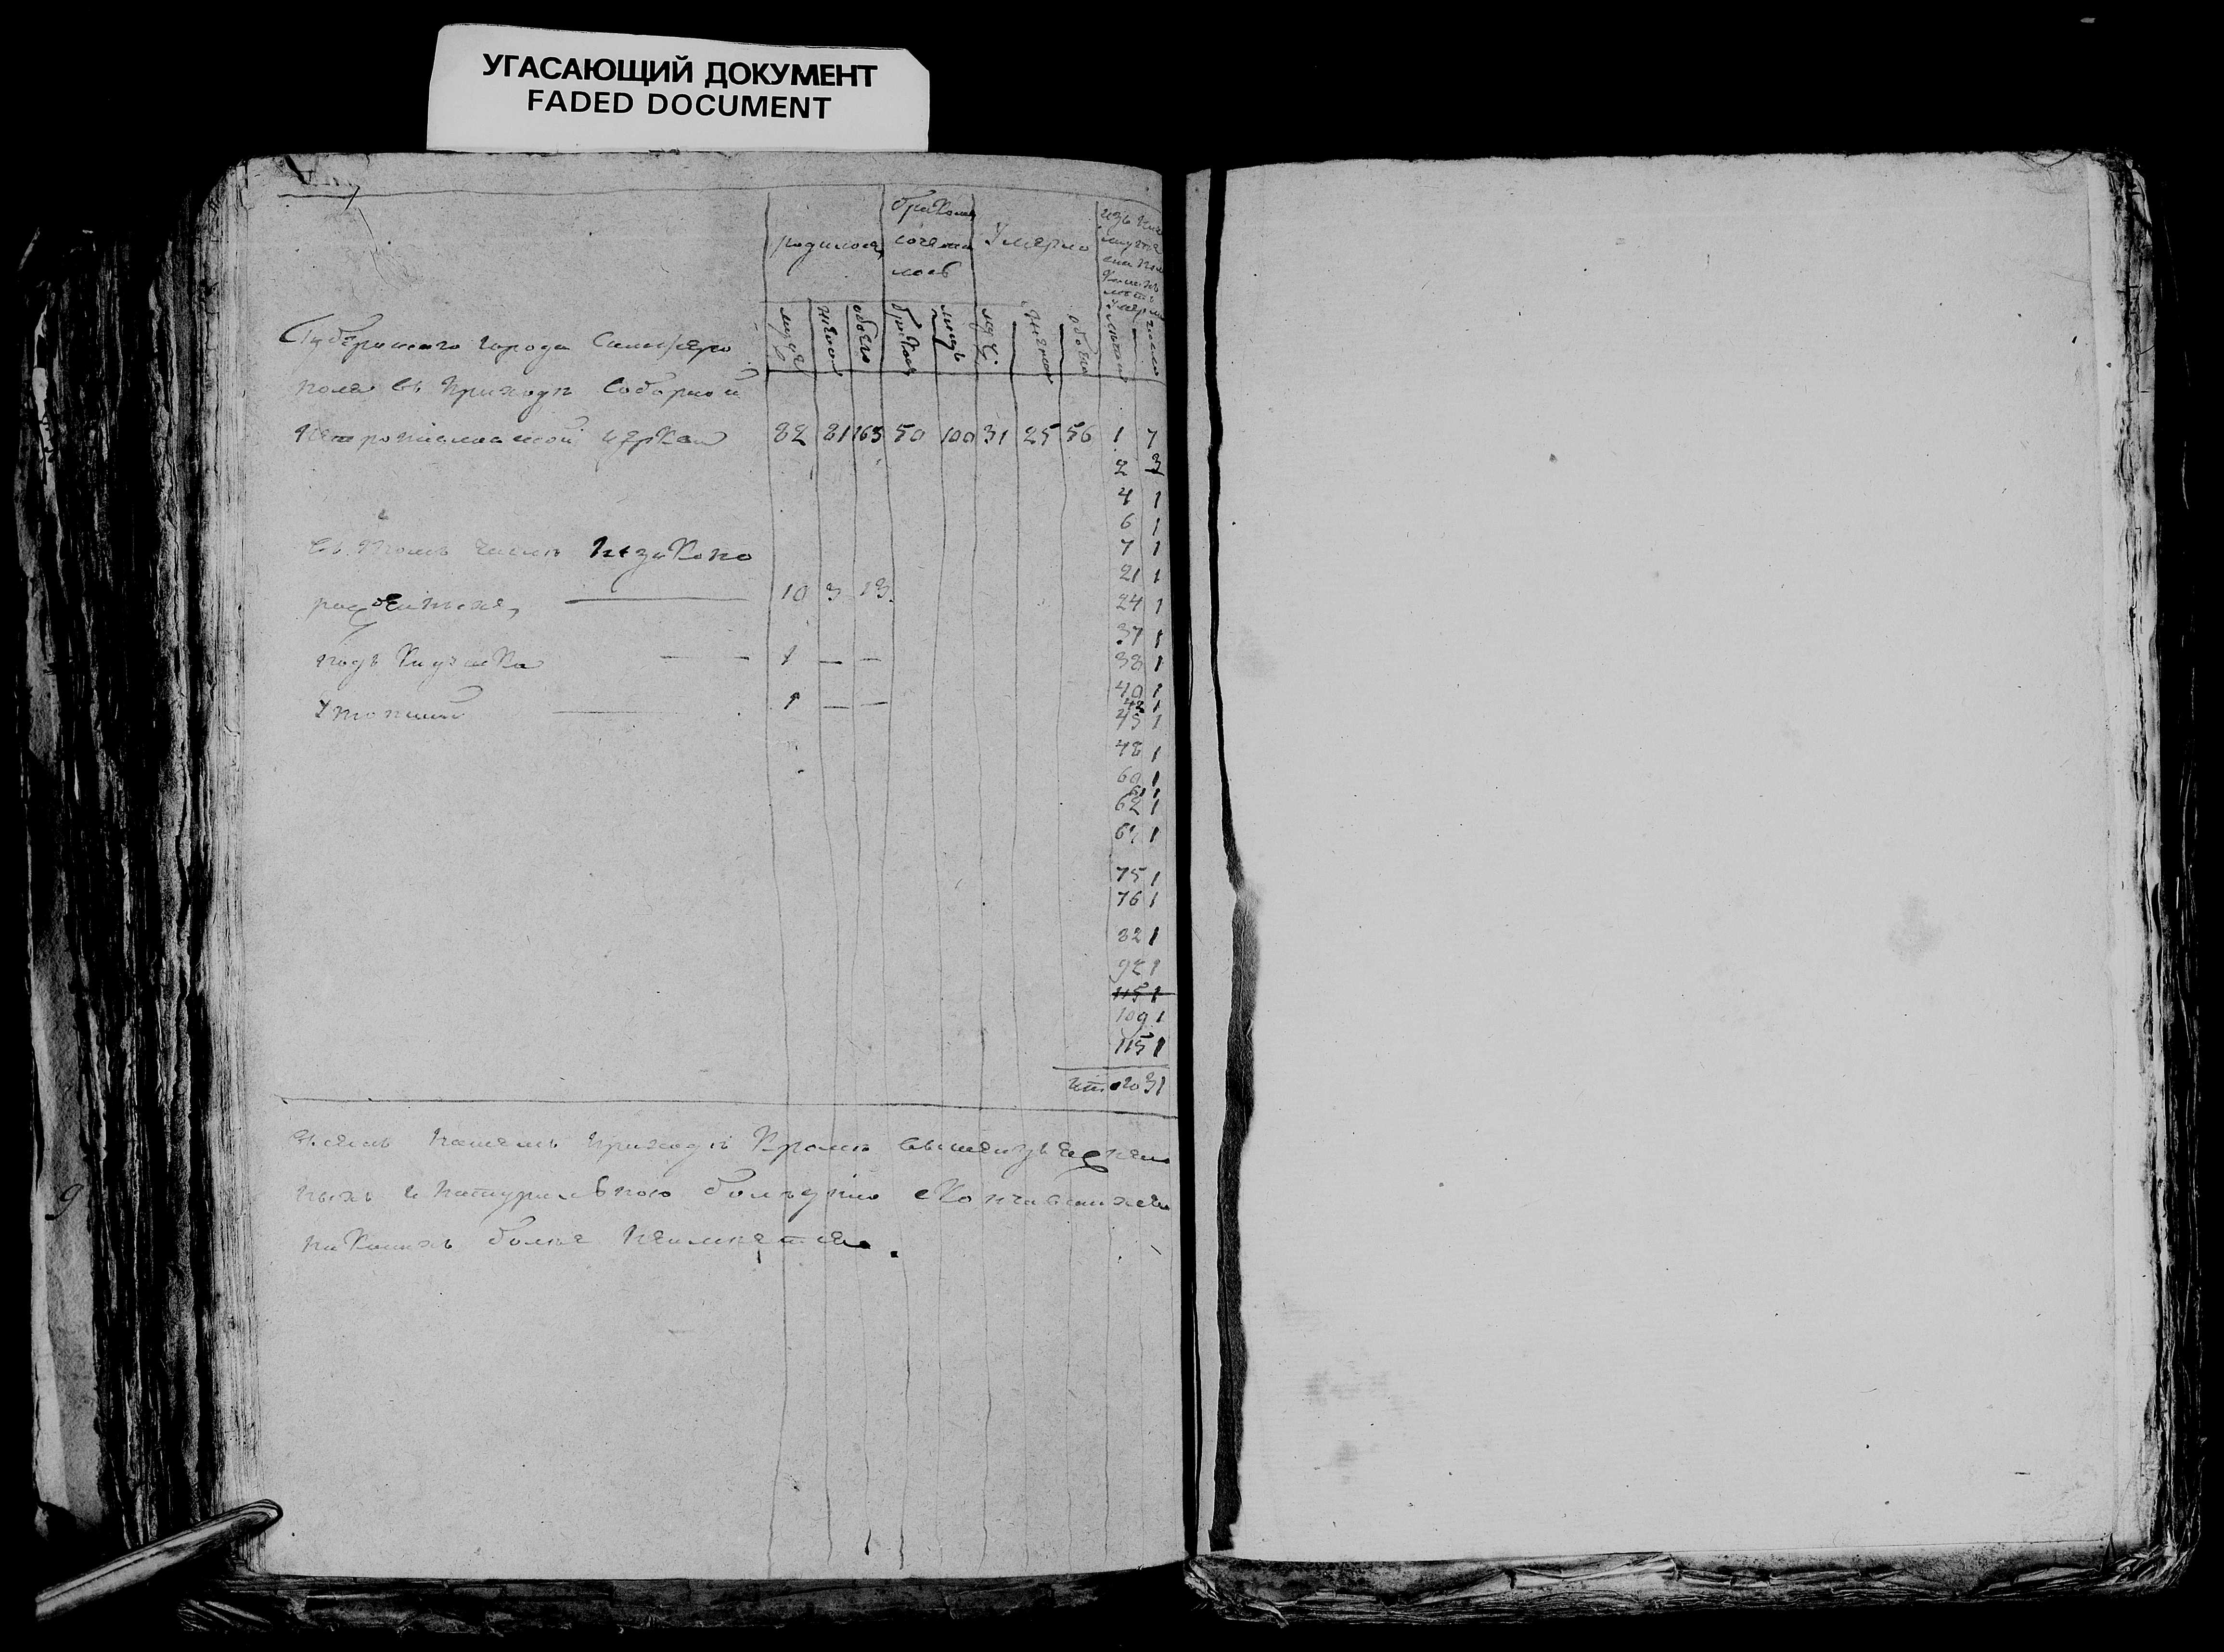 УГАСАЮЩИЙ ДОКУМЕНТ
FADED DOCUMENT
родилось
бракомъ
сочета
лось
Умерло
изъ
мужес
женск
обоего
браков
людъ
муж:
женск
обоего
число
Губернскаго города Симферо
поля въ приходѣ Соборной
Петропавловской церкви 82 81 163 50 100 31 25 56 1 7
2 3
4 1
6 1
въ томъ числѣ незаконо
7 1
21 1
рожденныхъ 10 3 13
24 1
37 1
подъ Кидышка — — 1 — —
38 1
40 1
42 1
Утопший 1 — —
45 1
48 1
60 1
61 1
62 1
67 1
75 1
76 1
82 1
92 1
115 1
109 1
115 1
Итого 31
въ семъ нашемъ приходѣ кромѣ вышеизъясне
ныхъ и натуральною болѣзнію скончавшихся
никакихъ более неимѣется.
9